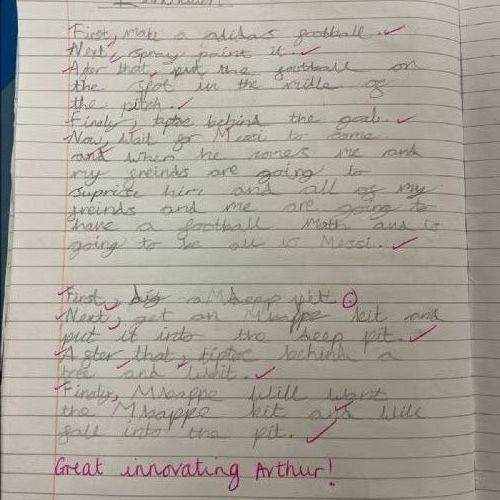 First, make a adidas football.
Next, spray paint it.
After that, put the football on
the spot in the midle of
the pitch.
Finaly, tiptoe behind the goal.
Now, wait for Messi to come
and when he comes me and
my freinds are going to
suprise him and all of my
freinds and me are going to
have a football Math and is
going to be all vs Messi.
First, dig a Mbeep pit.
Next, get an Mbappe kit and
put it into the deep pit.
After that, tiptoe behind a
tree and wait.
Finaly, Mbappe will want
the Mbappe kit and will
fall into the pit.
Great innovating Arthur!